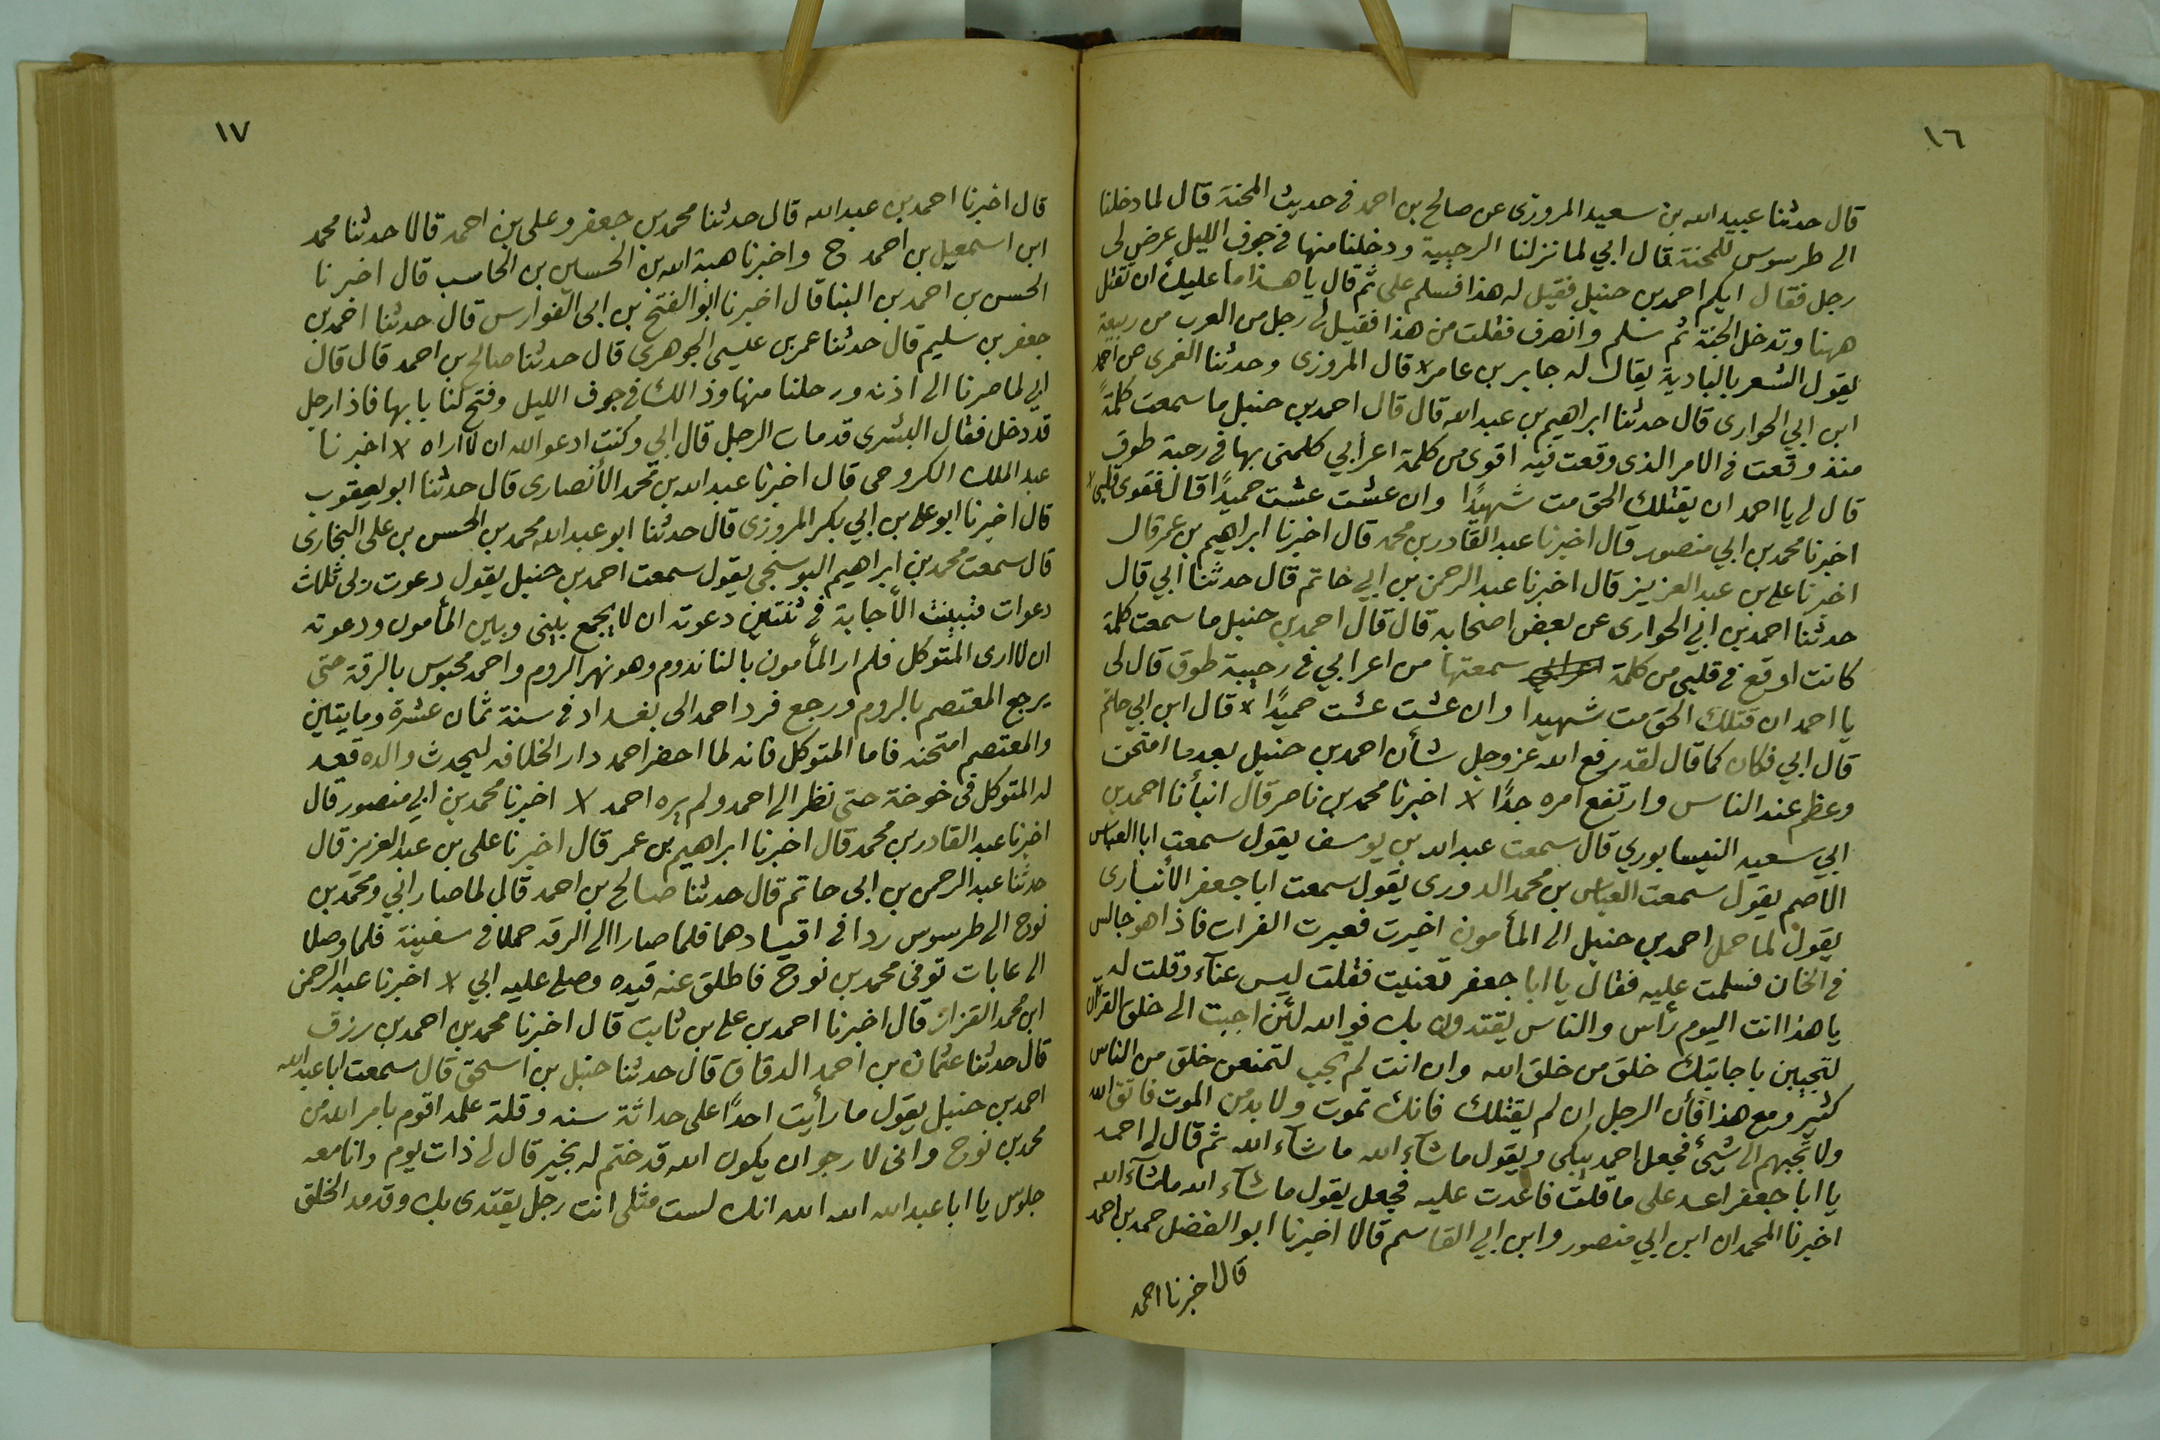 ١٦
قال حدثنا عبيد الله بن سعيد المروزى عن صالح بن احمد فى حديث المحنة قال لما دخلنا
الى طرسوس للمحنة قال ابي لما نزلنا الرحبية ودخلنا منها فى جوف الليل عرض لى
رجل فقال ايكم احمد بن حنبل فقيل له هذا فسلم على ثم قال يا هذا ما عليك ان تقتل
ههنا وتدخل الجنة ثم سلم وانصرف فقلت من هذا فقيل لى رجل من العرب من ربيعة
يقول الشعر بالبادية يقال له جابر بن عامر × قال المروزى وحدثنا الغمرى عن احمد
ابن ابي الحوارى قال حدثنا ابراهيم بن عبد الله قال قال احمد بن حنبل ما سمعت كلمةً
منذ وقعت فى الامر الذى وقعت فيه اقوى من كلمة اعرابي كلمنى بها فى رحبة طوق
قال لى يا احمد ان يقتلك الحق مت شهيدًا وان عشت عشت حميدًا قال فقوى قلبى ×
اخبرنا محمد بن ابي منصور قال اخبرنا عبد القادر بن محمد قال اخبرنا ابراهيم بن عمر قال
اخبرنا على بن عبد العزيز قال اخبرنا عبد الرحمن بن ابي حاتم قال حدثنا ابي قال
حدثنا احمد بن ابي الحوارى عن بعض اصحابه قال قال احمد بن حنبل ما سمعت كلمة
كانت اوقع فى قلبى من كلمة سمعتها من اعرابي فى رحبية طوق قال لى
يا احمد ان قتلك الحق مت شهيدا وان عشت عشت حميدًا × قال ابن ابي حاتم
قال ابي فكان كما قال لقد رفع الله عز وجل شأن احمد بن حنبل بعد ما امتحن
وعظم عند الناس وارتفع امره جدًا × اخبرنا محمد بن ناصر قال انبأنا احمد بن
ابي سعيد النيسابوري قال سمعت عبد الله بن يوسف يقول سمعت ابا العباس
الاصم يقول سمعت العباس بن محمد الدورى يقول سمعت ابا جعفر الأنبارى
يقول لما حمل احمد بن حنبل الى المأمون اخبرت فعبرت الفرات فاذا هو جالس
فى الخان فسلمت عليه فقال يا ابا جعفر تعنيت فقلت ليس عنآء وقلت له
يا هذا انت اليوم رأس والناس يقتدون بك فوالله لئن اجبت الى خلق القرآن
لتجيبن باجابتك خلق من خلق الله وان انت لم تجب لتمنعن خلق من الناس
كثير ومع هذا فأن الرجل ان لم يقتلك فانك تموت ولا بد من الموت فاتق الله
ولا تجبهم الى شيئ فجعل احمد يبكى ويقول ما شآء الله ما شاء الله ثم قال لى احمد
يا ابا جعفر اعد على ما قلت فاعدت عليه فجعل يقول ما شآء الله ما شآء الله
اخبرنا المحمدان ابن ابي منصور وابن ابي القاسم قالا اخبرنا ابو الفضل حمد بن احمد
قال اخبرنا احمد
١٧
قال اخبرنا احمد بن عبد الله قال حدثنا محمد بن جعفر وعلى بن احمد قالا حدثنا محمد
ابن اسمعيل بن احمد ح واخبرنا هبة الله بن الحسين بن الحاسب قال اخبرنا
الحسن بن احمد بن البنا قال اخبرنا ابو الفتح بن ابى الفوارس قال حدثنا احمد بن
جعفر بن سليم قال حدثنا عمر بن عيسى الجوهرى قال حدثنا صالح بن احمد قال قال
ابي لما صرنا الى اذنه ورحلنا منها وذالك فى جوف الليل وفتح لنا بابها فاذا رجل
قد دخل فقال البشرى قد مات الرجل قال ابي وكنت ادعو الله ان لا اراه × اخبرنا
عبد الملك الكروخى قال اخبرنا عبد الله بن محمد الأنصارى قال حدثنا ابو يعقوب
قال اخبرنا ابو على بن ابي بكر المروزى قال حدثنا ابو عبد الله محمد بن الحسن بن على البخارى
قال سمعت محمد بن ابراهيم البوسنجى يقول سمعت احمد بن حنبل يقول دعوت ربى ثلاث
دعوات فتبينت الأجابة فى ثنتين دعوته ان لا يجمع بينى وبين المأمون ودعوته
ان لا ارى المتوكل فلم ار المأمون بالناندوم وهو نهر الروم واحمد محبوس بالرقة حتى
يرجع المعتصم بالروم ورجع فرد احمد الى بغداد فى سنة ثمان عشرة ومايتين
والمعتصم امتحنه فاما المتوكل فانه لما احضر احمد دار الخلافه ليحدث والده قعد
له المتوكل فى خوخة حتى نظر الى احمد ولم يره احمد × اخبرنا محمد بن ابي منصور قال
اخبرنا عبد القادر بن محمد قال اخبرنا ابراهيم بن عمر قال اخبرنا على بن عبد العزيز قال
حدثنا عبد الرحمن بن ابى حاتم قال حدثنا صالح بن احمد قال لما صار ابي ومحمد بن
نوح الى طرسوس ردا فى اقيادهما فلما صارا الى الرقه حملا فى سفينة فلما وصلا
الى عابات توفى محمد بن نوح فاطلق عنه قيده وصلى عليه ابي × اخبرنا عبد الرحمن
ابن محمد القزاز قال اخبرنا احمد بن على بن ثابت قال اخبرنا محمد بن احمد بن رزق
قال حدثنا عثمان بن احمد الدقاق قال حدثنا حنبل بن اسحق قال سمعت ابا عبد الله
احمد بن حنبل يقول ما رأيت احدًا على حداثة سنه وقلة علمه اقوم بامر الله من
محمد بن نوح وانى لارجو ان يكون الله قد ختم له بخير قال لى ذات يوم وانا معه
جلوس يا ابا عبد الله الله الله انك لست مثلى انت رجل يقتدى بك وقد مد الخلق